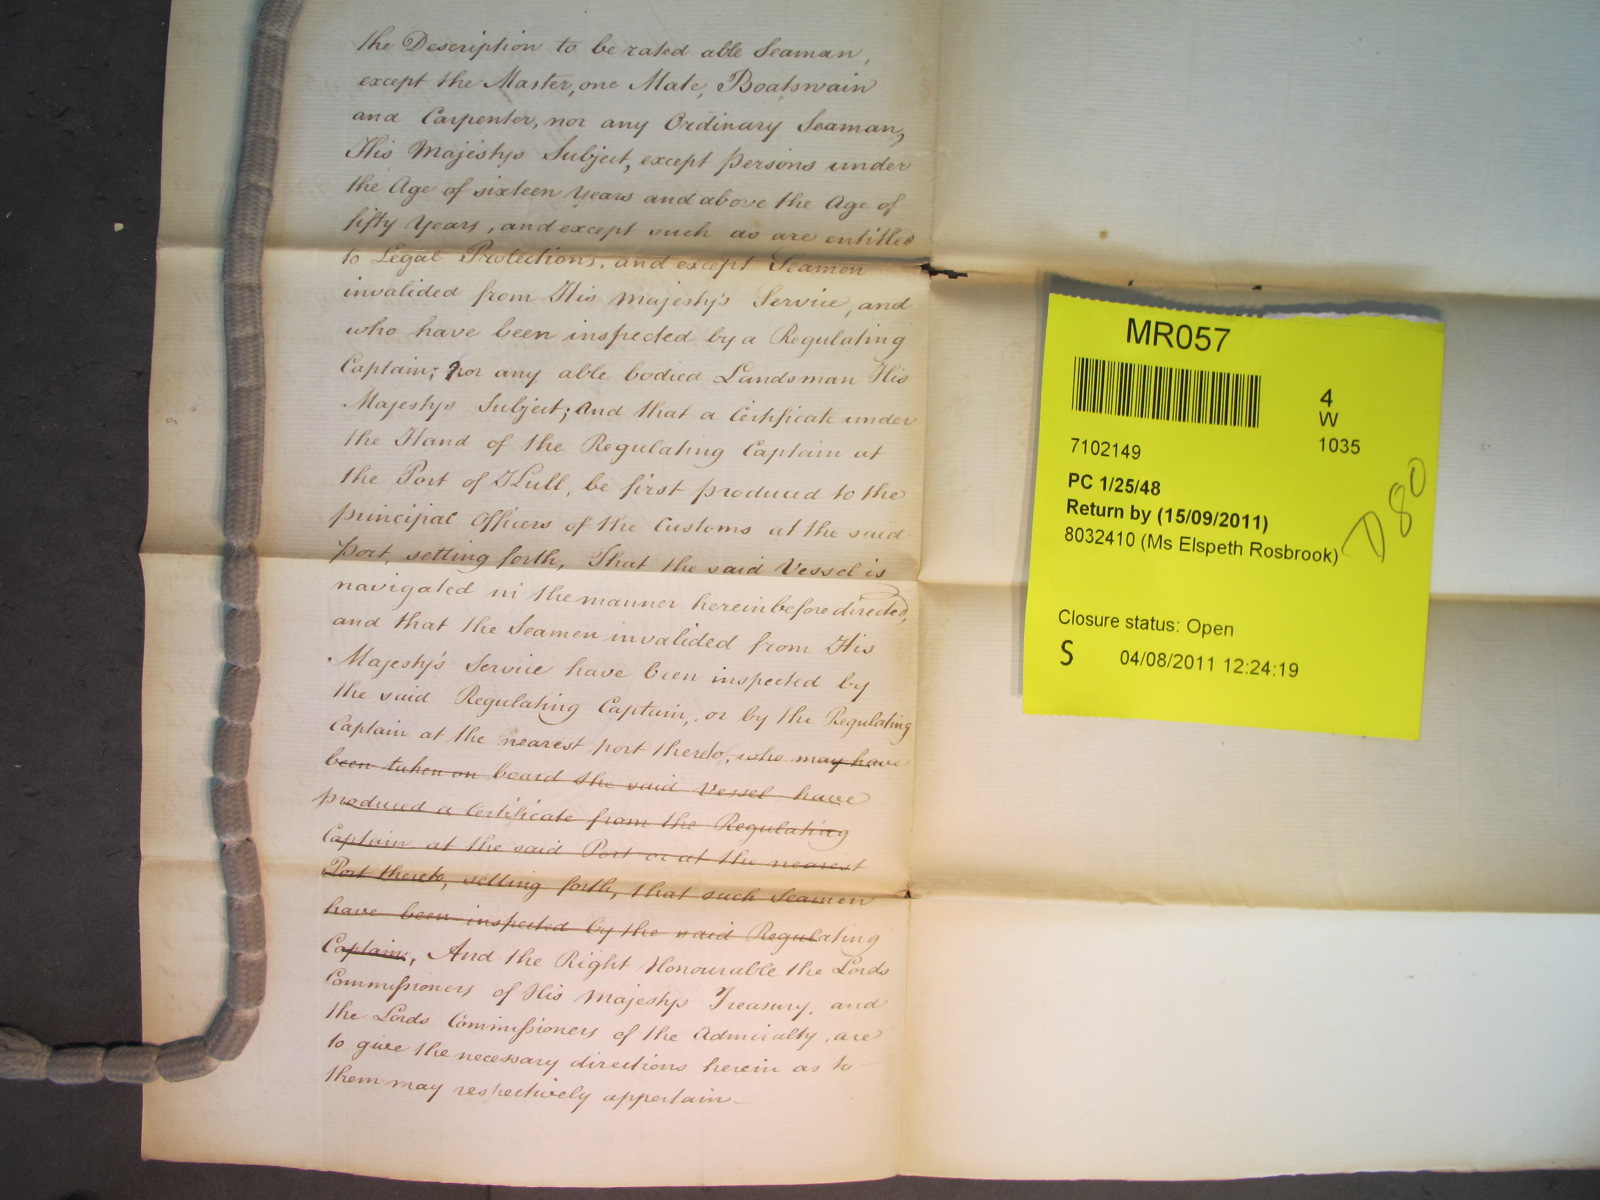 the Description to be rated able Seaman,
except the Master, one Mate, Boatswain
and Carpenter, nor any Ordinary Seaman,
His Majestys Subject, except persons under
the Age of sixteen Years and above the Age of
fifty Years, and except such as are entitled
to Legal Protections, and except Seamen
invalided from His Majesty's Service, and
who have been inspected by a Regulating
Captain; Nor any able bodied Landsman His
Majestys Subject; And that a Certificate under
the Hand of the Regulating Captain at
the Port of Hull, be first produced to the
principal Officers of the Customs at the said
port, setting forth, That the said Vessel is
navigated in the manner hereinbefore directed,
and that the Seamen invalided from His
Majesty's Service have been inspected by
the said Regulating Captain, or by the Regulating
Captain at the nearest port thereto, who may have
been taken on board the said Vessel have
produced a Certificate from the Regulating
Captain at the said Port or at the nearest
Port thereto, setting forth, that such Seamen
have been inspected by the said Regulating
Captain, And the Right Honourable the Lords
Commissioners of His Majestys Treasury, and
the Lords Commissioners of the Admiralty, are
to give the necessary directions herein as to
them may respectively appertain
MR057
4
W
1035
7102149
PC 1/25/48
Return by (15/09/2011)
8032410 (Ms Elspeth Rosbrook)
D80
Closure status: Open
S 04/08/2011 12:24:19